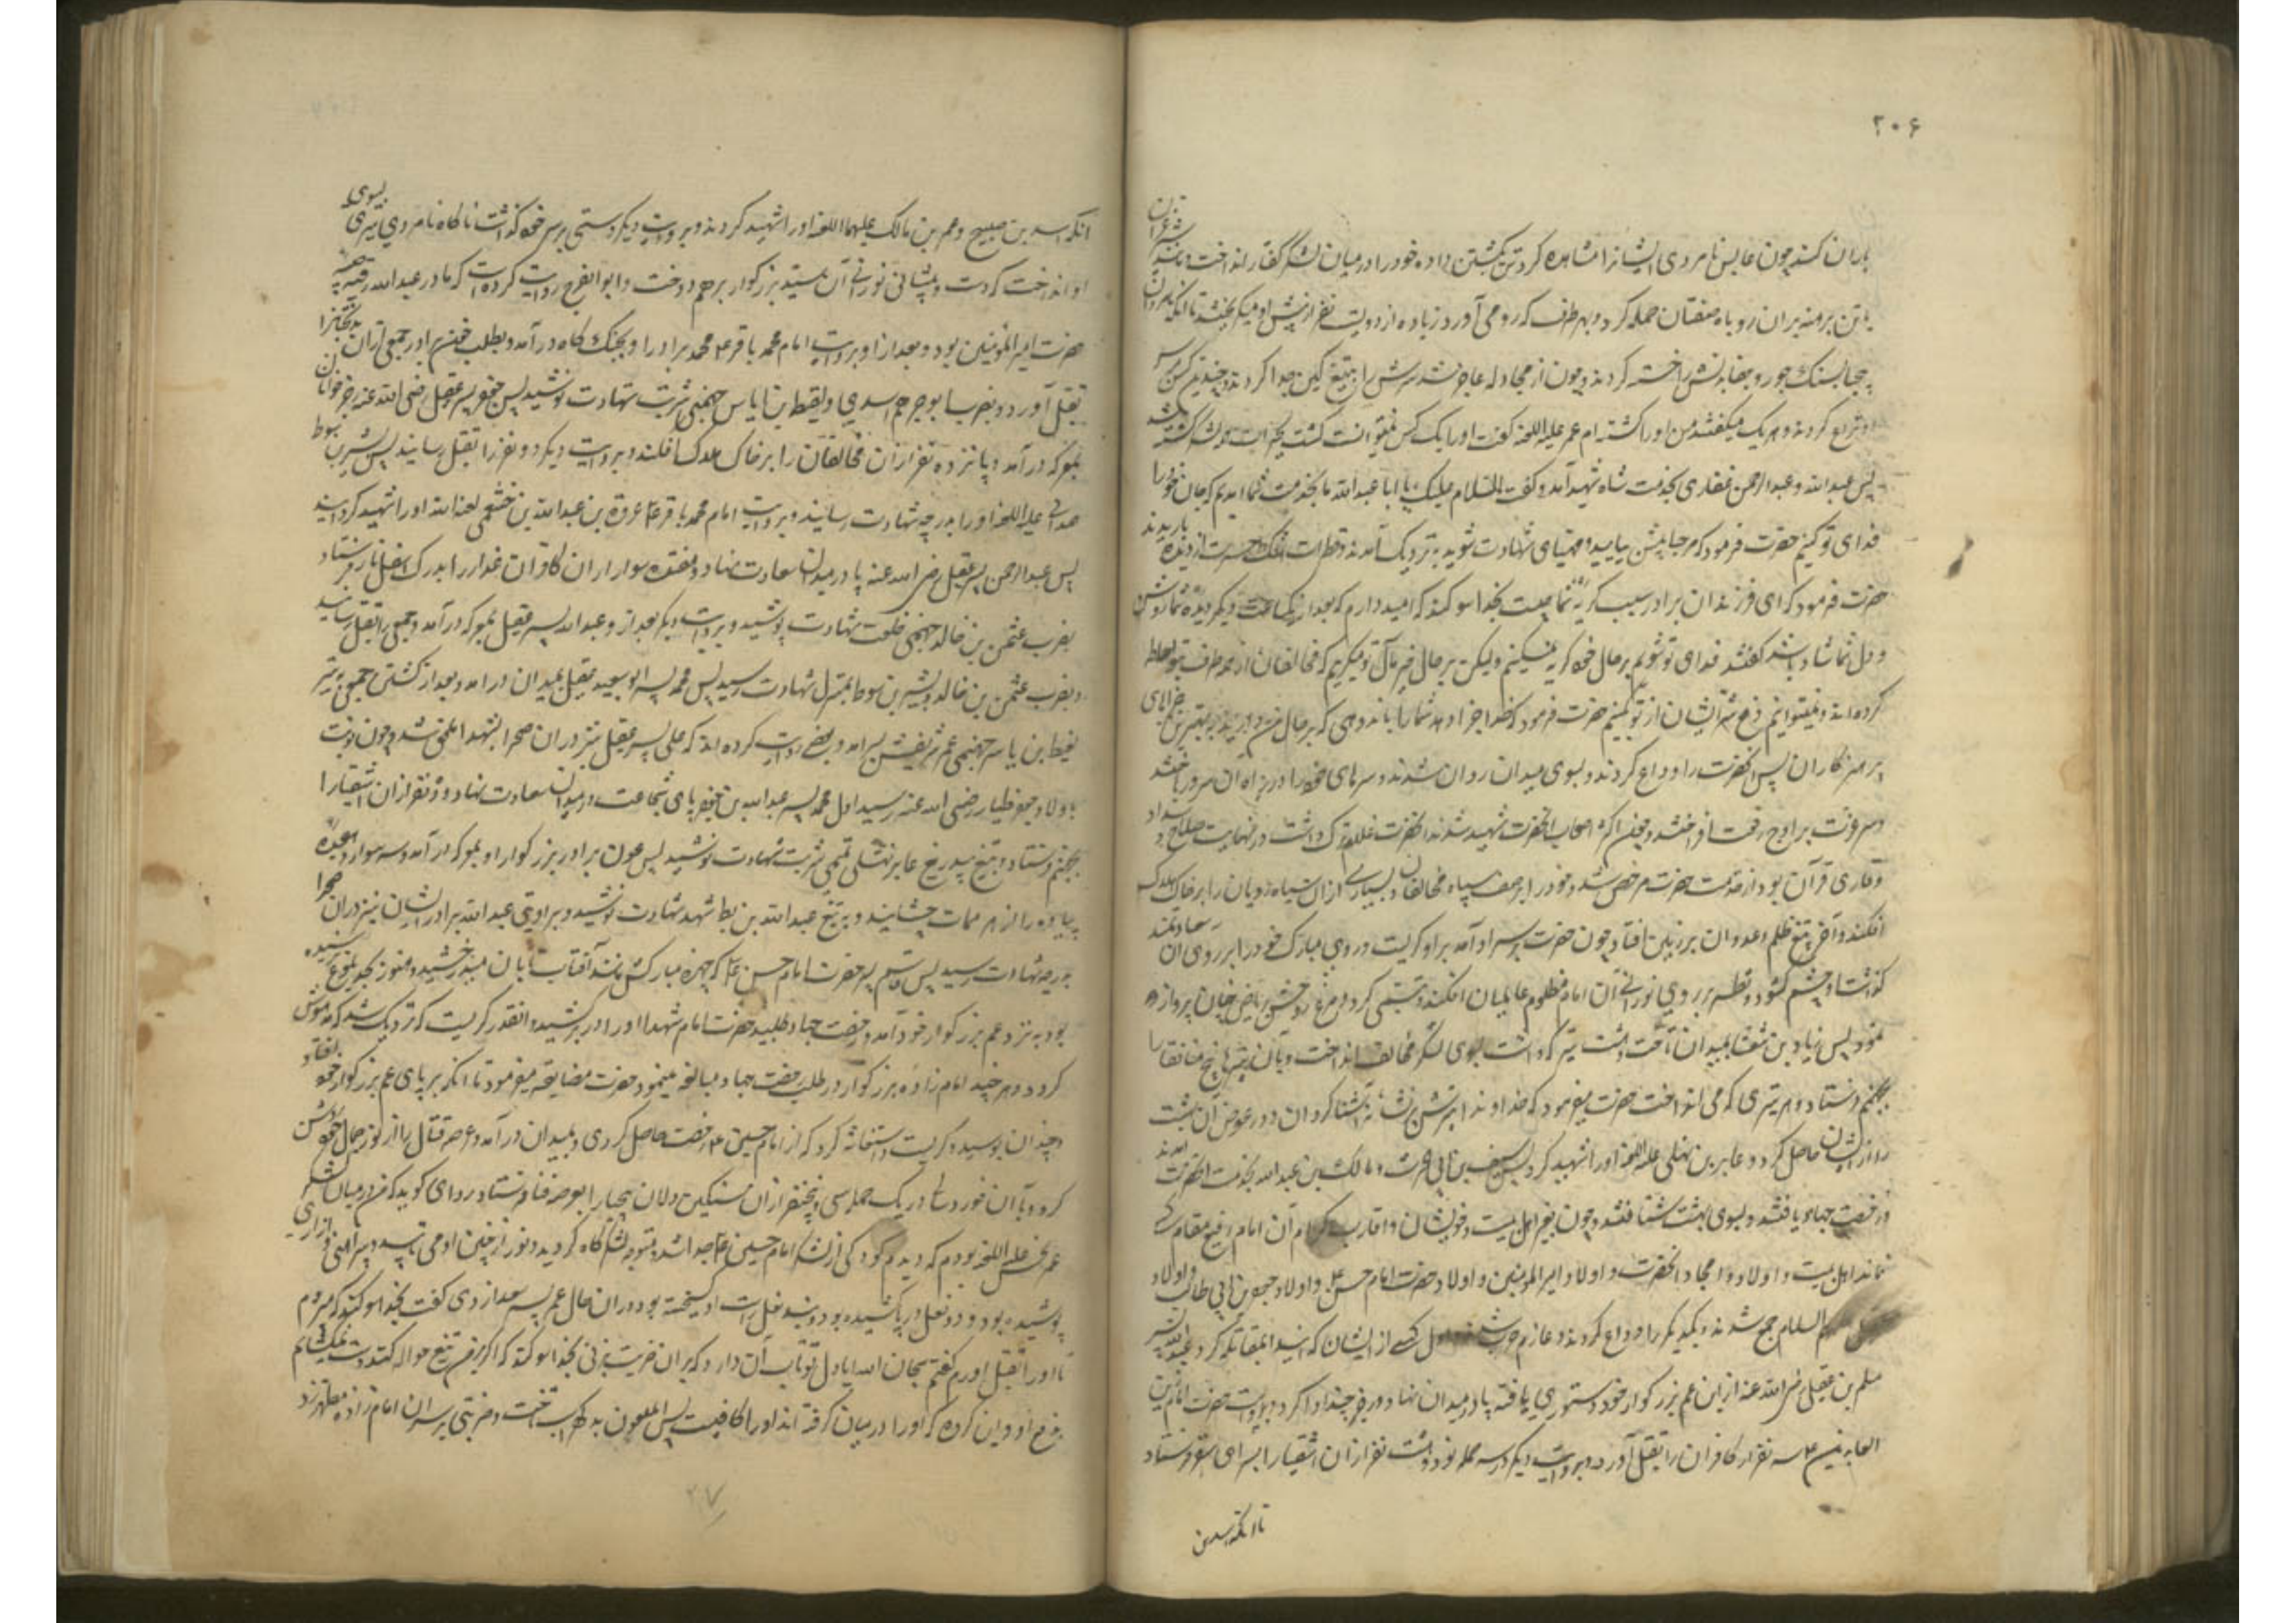 ۲۰۶
باران کنند چون عابس نامردی ایشانرا مشاهده کرد تن بکشتن داده خود را در میان لشکر کفار انداخت و مانند شیر غران
با تن برهنه بران روباه صفتان حمله کرد و بهر طرف که رو می آورد زیاده از دویست نفر از پیش او میکریختند تا آنکه نامردان
بسنک جور و جفا بدنش را خسته کردند و چون از مجادله عاجز شد سرش را به تیغ کین جدا کردند و چندین کس بر سر
او نزاع کردند و هر یک میکفتند من او را کشته ام عمر علیه اللعنه کفت او را یک کس نمیتوانست کشت
پس عبدالله و عبدالرحمن غفاری بخدمت شاه شهید آمدند و کفت السلام علیک یا ابا عبدالله ما بخدمت شما آمدیم که جان خود را
فدای تو کنیم حضرت فرمود که مرحبا پیش بیایید و مهیای شهادت شوید نزدیک آمدند و قطرات اشک حسرت از دیده باریدند
حضرت فرمود که ای فرزندان برادر سبب کریه شما چیست بخدا سوکند که امید دارم که بعد از یکساعت دیکر دیده شما روشن
و دل شما شاد باشد کفتند فدای تو شویم بر حال خود کریه نمیکنیم ولیکن بر حال تو میکرییم که مخالفان از همه طرف بتو احاطه
کرده اند و نمیتوانیم دفع شر ایشان از تو کنیم حضرت فرمود که خدا جزا دهد شما را باندوهی که بر حال من دارید بهترین جزاهای
پرهیزکاران پس آنحضرت را وداع کردند و بسوی میدان روان شدند و سرهای خود را در راه آن سرور باختند
و سر رفعت بر اوج رفعت افراختند و چون اکثر اصحاب آنحضرت شهید شدند آنحضرت غلام ترکی داشت در نهایت صلاح و سداد
و قاری قرآن بود از خدمت حضرت مرخص شد و خود را بر صف سپاه مخالفان و بسیاری از آن سیاه رویان را بر خاک هلاک
افکند و آخر بتیغ ظلم و عدوان بر زمین افتاد چون حضرت بر سر او آمد بر او کریست و روی مبارک خود را بر روی آن سعادتمند
کذاشت او چشم کشود و نظر بر روی نورانی آن امام مظلوم عالمیان افکند و تبسمی کرد و مرغ روحش بریاض جنان پرواز
نمود پس زیاد بن شعثا بمیدان تاخت و هشت تیر که داشت بسوی لشکر مخالف انداخت و بآن تیرها پنج منافق را
بجهنم فرستاد و هر تیری که می انداخت حضرت میفرمود که خداوندا تیرش بر نشانه آشنا کردان و در عوض آن بهشت
او را حاصل کرد و عامر بن نهشلی علیه اللعنه او را شهید کرد پس سیف بن ابی الحرث و مالک بن عبدالله بخدمت آنحضرت آمدند
و رخصت جهاد یافتند و بسوی بهشت شتافتند و چون بغیر اهل بیت و خویشان و اقارب کرام آن امام رفیع مقام کسی
نماند اهل بیت و اولاد امجاد آنحضرت و اولاد امیرالمومنین و اولاد حضرت امام حسن ع و اولاد جعفر بن ابی طالب و اولاد
عقیل علیهم السلام جمع شدند و یکدیکر را وداع کردند و عازم حرب شدند اول کسی از ایشان که عبدالله پسر
مسلم بن عقیل رضی الله عنه از ابن عم بزرکوار خود دستوری یافته پا در میدان نهاد و رجز چند ادا کرد و بروایت حضرت امام زین
العابدین ع سه نفر از کافران را بقتل آورد و بروایت دیکر در سه حمله نود و هشت نفر از آن اشقیا را بسرای سقر فرستاد
تا آنکه اسد بن
آنکه اسد بن صبیح و عمر بن مالک علیهما اللعنه او را شهید کردند و بروایت دیکر دستی بر سر خود کذاشت ناکاه نامردی تیری بسوی
او انداخت که دست و پیشانی نورانی آن سید بزرکوار بر هم دوخت و ابوالفرج روایت کرده است که مادر عبدالله رقیه
حضرت امیرالمؤمنین بود و بعد از او بروایت امام محمد باقر ع محمد برادر او بجنک کاه در آمد و بطلب خون برادر جمعی از آن بدبختانرا
بقتل آورد و بضرب ابو جرهم اسدی و لقیط بن ایاس جهنی شربت شهادت نوشید پس جعفر پسر عقیل رضی الله عنه رجز خوانان
بمعرکه در آمد و پانزده نفر از آن مخالفان را بر خاک هلاک افکند و بروایت دیکر دو نفر را بقتل رسانید پس بشر بن سوط
همدانی علیه اللعنه او را بدرجه شهادت رسانید و بروایت امام محمد باقر ع عروة بن عبدالله بن خثعمی لعنه الله او را شهید کردانید
پس عبدالرحمن پسر عقیل رضی الله عنه پا در میدان سعادت نهاد و هفده سوار از آن کافران غدار را بدرک اسفل نار فرستاد
بضرب عثمن بن خالد جهنی خلعت شهادت پوشید و بروایت دیکر بعد از او عبدالله پسر عقیل بمعرکه در آمد و جمعی را بقتل رسانید
و بضرب عثمن بن خالد و بشر بن سوط بمنزل شهادت رسید پس محمد پسر ابو سعید عقیل بمیدان در آمد و بعد از کشتن جمعی به تیر
لقیط بن یاسر جهنی عمر شریفش بسر آمد و بعضی روایت کرده اند که علی پسر عقیل نیز در آن صحرا بشهدا ملحق شد و چون نوبت
باولاد جعفر طیار رضی الله عنه رسید اول محمد پسر عبدالله بن جعفر پای شجاعت در میدان سعادت نهاد و ده نفر از آن اشقیا را
بجهنم فرستاد و به تیغ بیدریغ عامر نهشلی تمیمی شربت شهادت نوشید پس عون برادر بزرکوار او بمعرکه در آمد و سه سوار و هیجده
پیاده را زهر ممات چشانید و به تیغ عبدالله بن بطه شهد شهادت نوشید و بروایتی عبدالله برادر ایشان نیز در آن صحرا
بدرجه شهادت رسید پس قاسم پسر حضرت امام حسن ع که چهره مبارکش مانند آفتاب تابان میدرخشید و هنوز بحد بلوغ نرسیده
بود به نزد عم بزرکوار خود آمد و رخصت جهاد طلبید حضرت امام شهدا او را در بر کشید و آنقدر کریست که نزدیک شد که مدهوش
کردد و هر چند امام زاده بزرکوار در طلب رخصت جهاد مبالغه مینمود حضرت مضایقه میفرمود تا آنکه بر پای عم بزرکوار خود افتاد
و چندان بوسید و کریست و استغاثه کرد که از امام حسین ع رخصت حاصل کرد و بمیدان در آمد و عرصه قتال را از نور جمال خود روشن
کرد و با آن خورد سالی در یک حمله سی و پنج نفر از آن سنکین دلان بیحیا را بعرصه فنا فرستاد راوی کوید که من در میان لشکر
عمر نحس علیه اللعنه بودم که دیدم کودکی از لشکر امام حسین ع جدا شد و متوجه لشکرکاه کردید و نور از جبین او می تابید و پیراهنی و ازاری
پوشیده بود و دو نعل در پا کشیده بود و بند نعل راست او کسیخته بود در آن حال عمر پسر سعد ازدی کفت بخدا سوکند که میروم
تا او را بقتل آورم کفتم سبحان الله آیا دل تو تاب آن دارد که بر آن ضربت بزنی بخدا سوکند که اکر بر من تیغ حواله کند دست نمیکشایم
این کروه که او را در میان کرفته اند او را کافیست پس آن ملعون مرکب تاخت و ضربتی بر سر آن امام زاده مطهر زد
۲۷